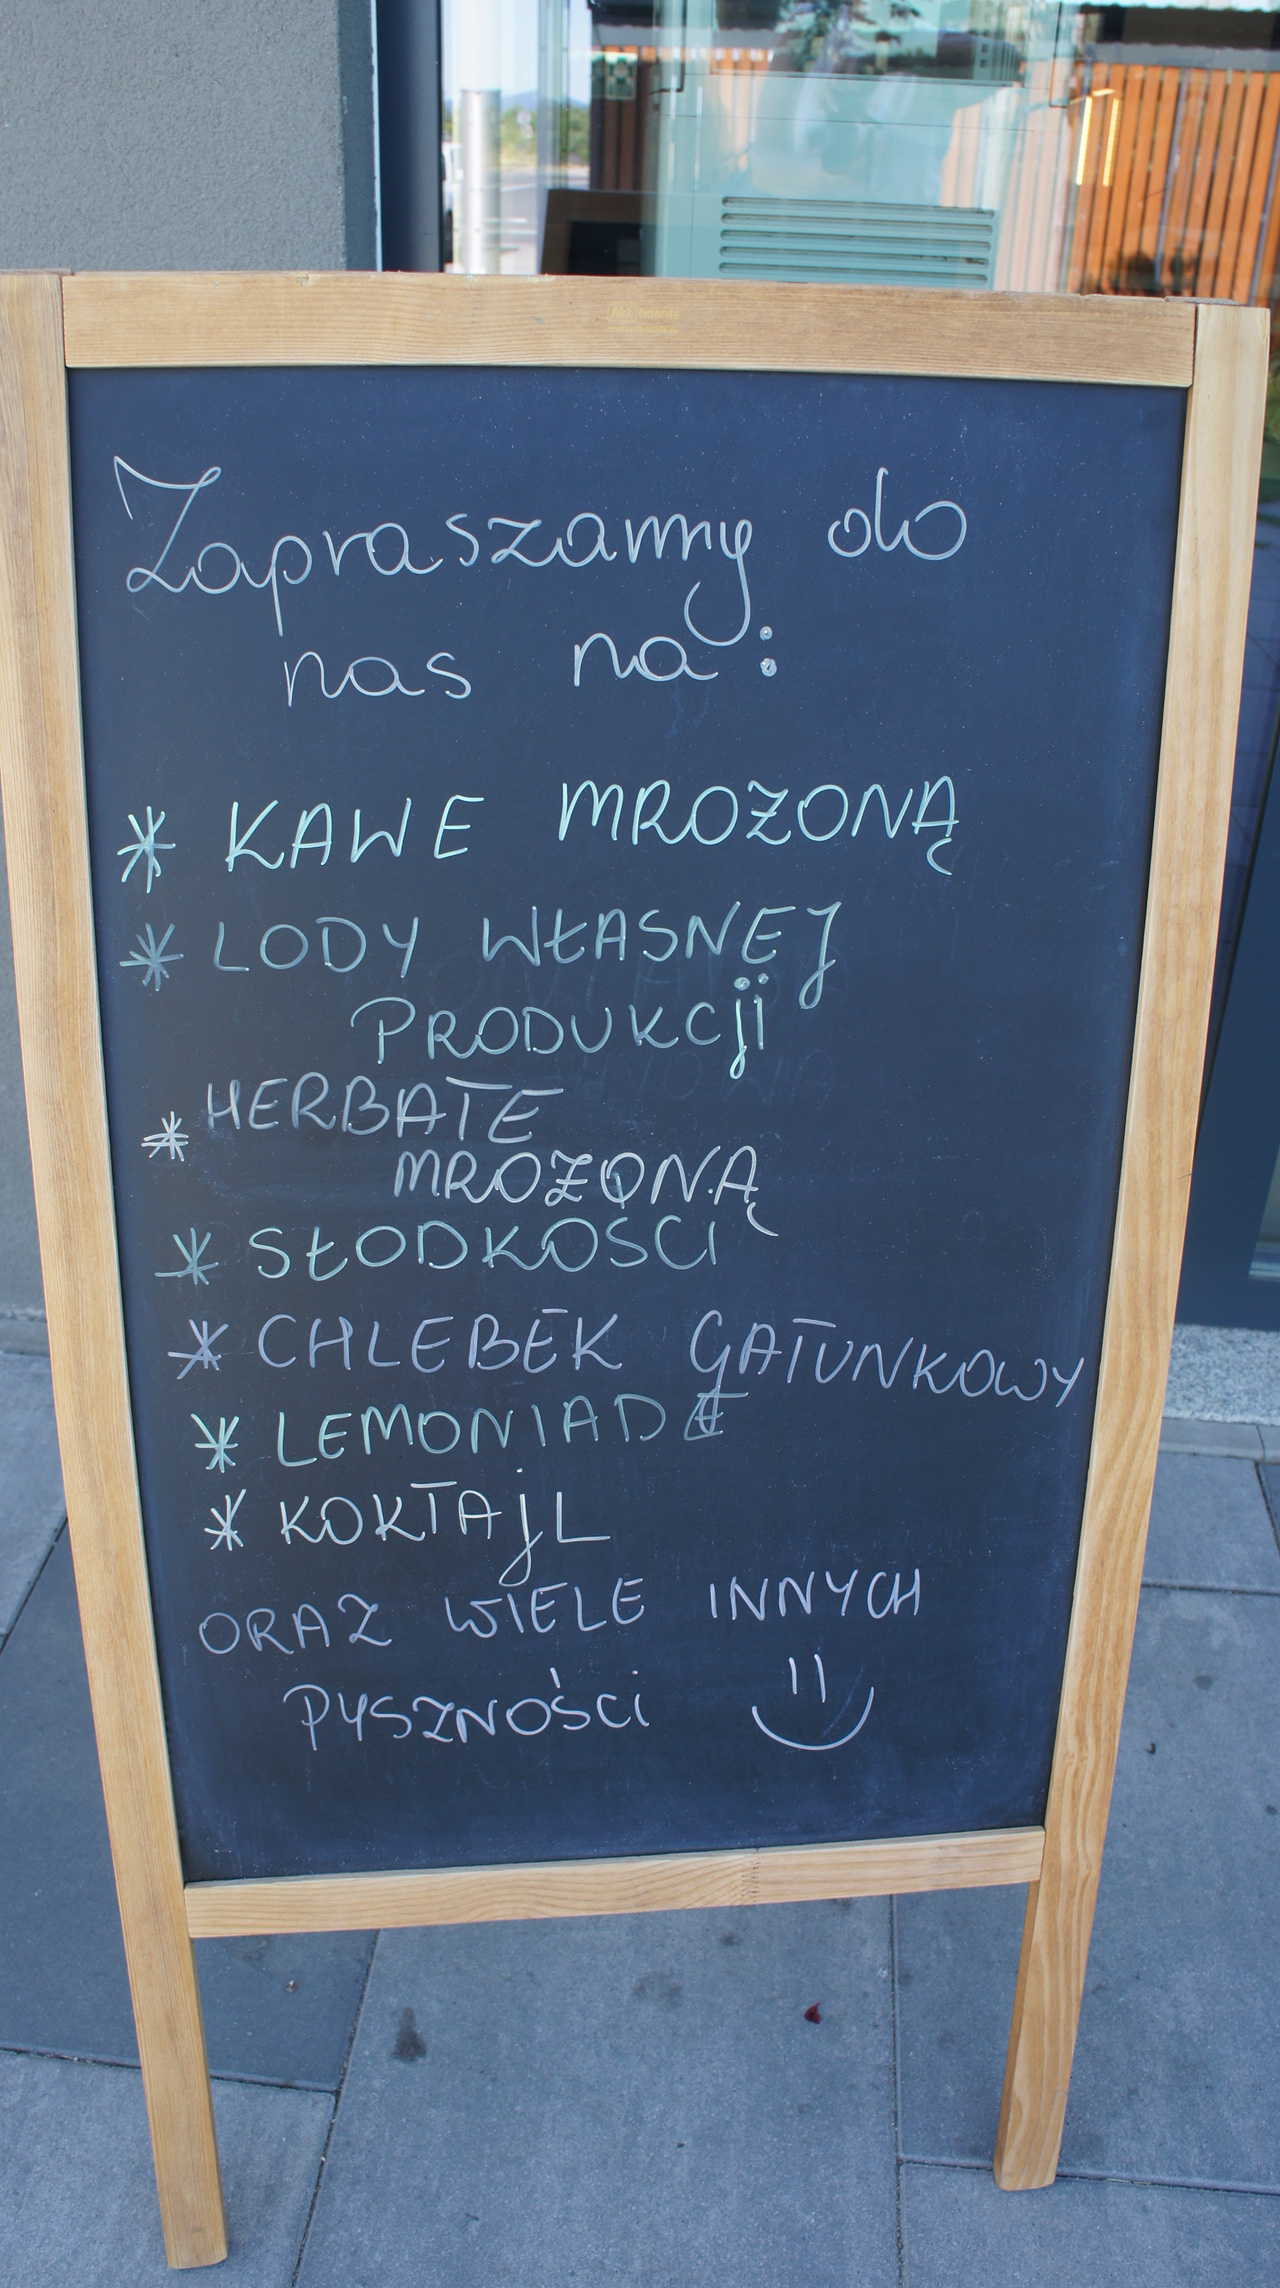 Zapraszamy do
nas na:
* KAWE MROZONĄ
* LODY WŁASNEJ
PRODUKCji
* HERBATE
MROZONĄ
* SŁODKOSCI
* CHLEBEK GATUNKOWY
* LEMONIADE
* KOKTAjL
ORAZ WIELE INNYCH
PYSZNOŚCi